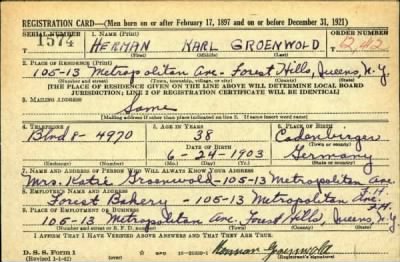 REGISTRATION CARD—(Men born on or after February 17, 1897 and on or before December 31, 1921)
SERIAL NUMBER 1. NAME (Print) ORDER NUMBER
1574 HERMAN KARL GROENWOLD
(First) (Middle) (Last)
2. PLACE OF RESIDENCE (Print)
105-13 Metropolitan Ave. Forest Hills, Queens, N.Y.
(Number and street) (Town, township, village, or city) (County) (State)
[THE PLACE OF RESIDENCE GIVEN ON THE LINE ABOVE WILL DETERMINE LOCAL BOARD
JURISDICTION; LINE 2 OF REGISTRATION CERTIFICATE WILL BE IDENTICAL]
3. MAILING ADDRESS
Same
[Mailing address if other than place indicated on line 2. If same insert word same]
4. TELEPHONE 5. AGE IN YEARS 6. PLACE OF BIRTH
Blvd 8-4970 38
DATE OF BIRTH (Town or county)
6-24-1903 Germany
(Exchange) (Number) (Mo.) (Day) (Yr.) (State or country)
7. NAME AND ADDRESS OF PERSON WHO WILL ALWAYS KNOW YOUR ADDRESS
Mrs. Katie Groenwold-105-13 Metropolitan Ave
8. EMPLOYER'S NAME AND ADDRESS F.H.
Forest Bakery - 105-13 Metropolitan Ave
9. PLACE OF EMPLOYMENT OR BUSINESS F.H.
105-13 Metropolitan Ave. Forest Hills, Queens, N.Y.
(Number and street or R. F. D. number) (Town) (County) (State)
I AFFIRM THAT I HAVE VERIFIED ABOVE ANSWERS AND THAT THEY ARE TRUE.
D. S. S. Form 1
(Revised 1-1-42) Herman Groenwold
(Registrant's signature)